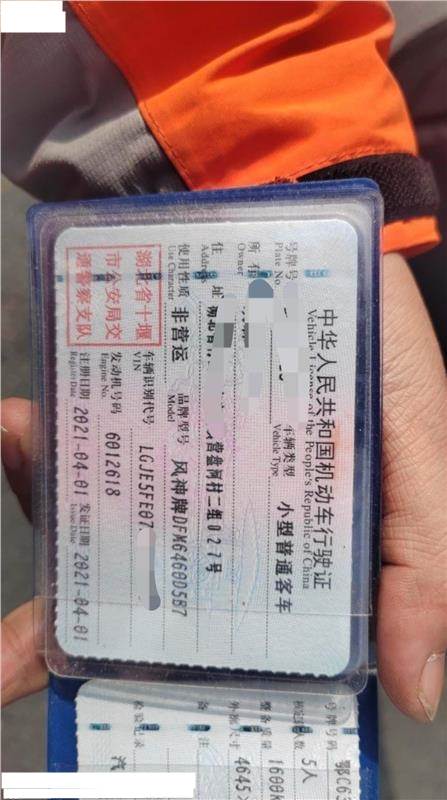 中华人民共和国机动车行驶证
Vehicle License of the People's Republic of China
号牌号
Plate No.
车辆类型 小型普通客车
Vehicle Type
所
Owner
住 址
Address
营盘河村二组027号
使用性质 非营运 品牌型号 风神牌DFM6460D5B7
Use Character Model
湖北省十堰
市公安局交
通警察支队
车辆识别代号 LGJE5FE07
VIN
发动机号码 6012618
Engine No.
注册日期 2021-04-01 发证日期 2021-04-01
Register Date Issue Date
号牌号码 鄂C6
核定载人数 5人
整备质量 1600k
外廓尺寸 4645×
备 注
检验记录